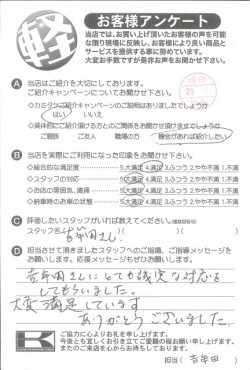 軽
お客様アンケート
当店では、お買い上げ頂いたお客様の声を可能
な限り現場に反映し、お客様により良い商品と
サービスを提供する事に努めています。
大変お手数ですが是非お声をお聞かせ下さい。
A 当店はご紹介を大切にしております。
ご紹介キャンペーンについてお聞かせ下さい。
◇カミタケご紹介キャンペーンのご説明はありましたでしょうか
はい いいえ
◇具体的にご紹介頂ける方とのご関係をお聞かせ頂けますでしょうか
ご親族 ご友人 職場の方 機会があれば紹介したい
B 当店を実際にご利用になった印象をお聞かせ下さい。
◇総合的な満足度 5.大満足 4.満足 3.ふつう 2.やや不満 1.不満
◇スタッフの対応 5.大満足 4.満足 3.ふつう 2.やや不満 1.不満
◇お店の雰囲気、清掃 5.大満足 4.満足 3.ふつう 2.やや不満 1.不満
◇納車時のお車の状態 5.大満足 4.満足 3.ふつう 2.やや不満 1.不満
C 評価したいスタッフがいれば教えてください。(複数回答可)
スタッフ名( 吉年田さん )
D 担当させて頂きましたスタッフへのご指摘、ご指導メッセージを
お願いします。応援メッセージもお願いします。
吉年田さんにとても誠実な対応を
してもらいました。
大変満足しています
ありがとうございました。
K
ご協力に心よりお礼を申し上げます。
今後とも宜しくお引き立てご愛顧の程お願い申し上げます。
またのご来店を心からお待ちしております。
担当( 吉年田 )